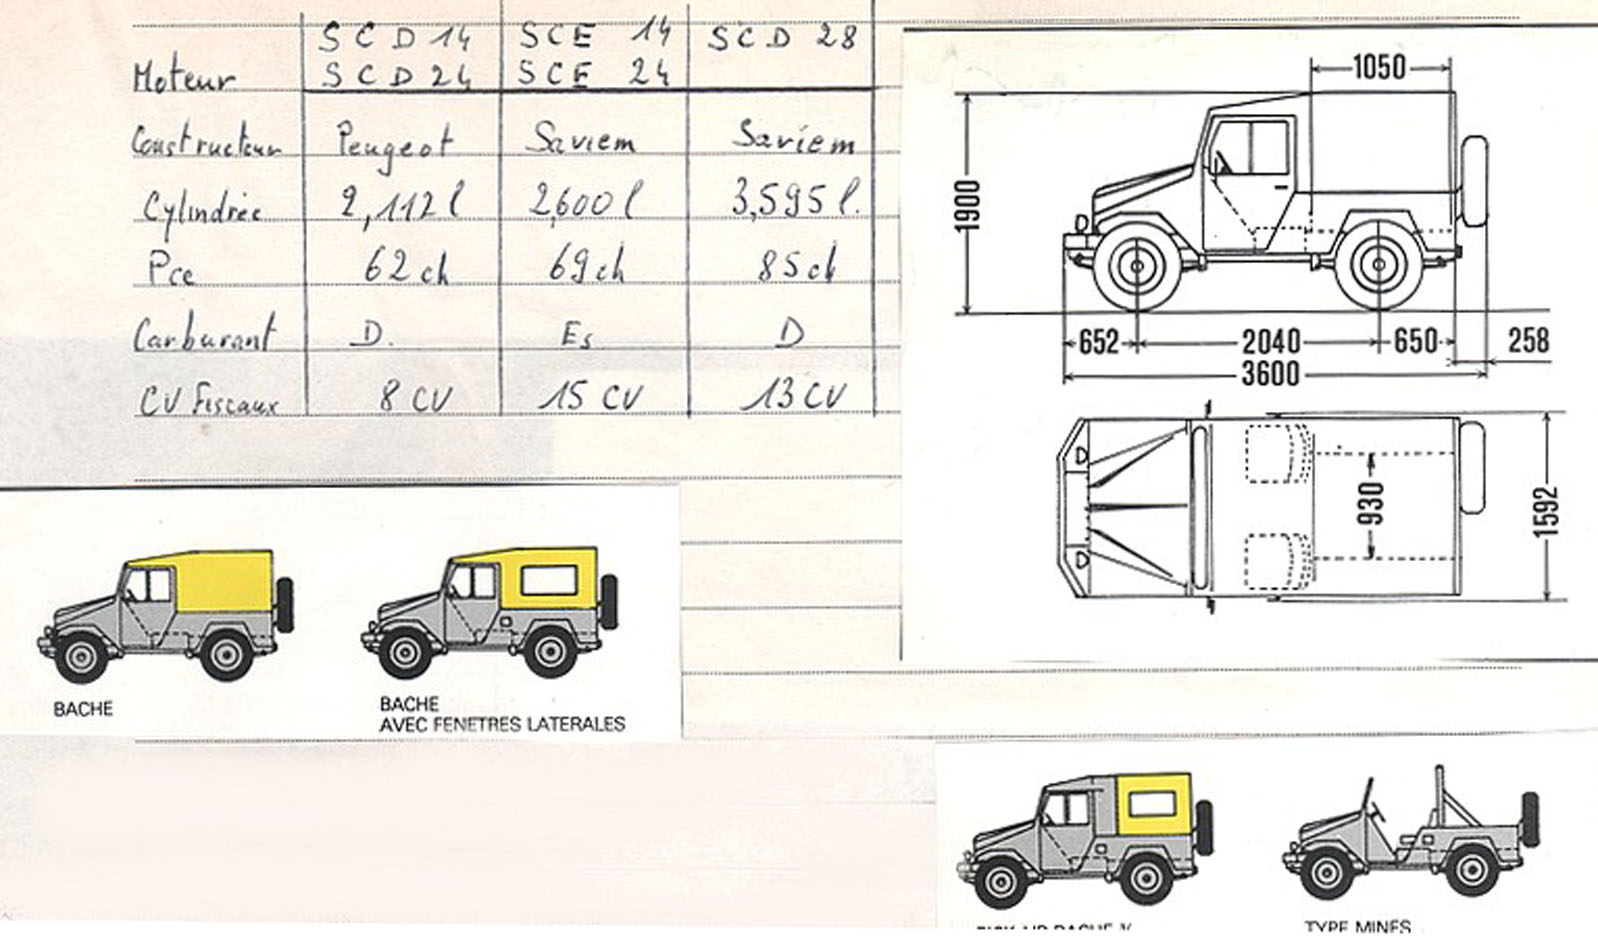 SCD 14 SCE 14 SCD 28
Moteur SCD 24 SCE 24
Constructeur Peugeot Saviem Saviem
Cylindrée 2,112 l 2,600 l 3,595 l.
Pce 62 ch 69 ch 85 ch
Carburant D. Es D
CV Fiscaux 8 CV 15 CV 13 CV
1050
1900
652 2040 650 258
3600
930
1592
BACHE
BACHE
AVEC FENETRES LATERALES
TYPE MINES